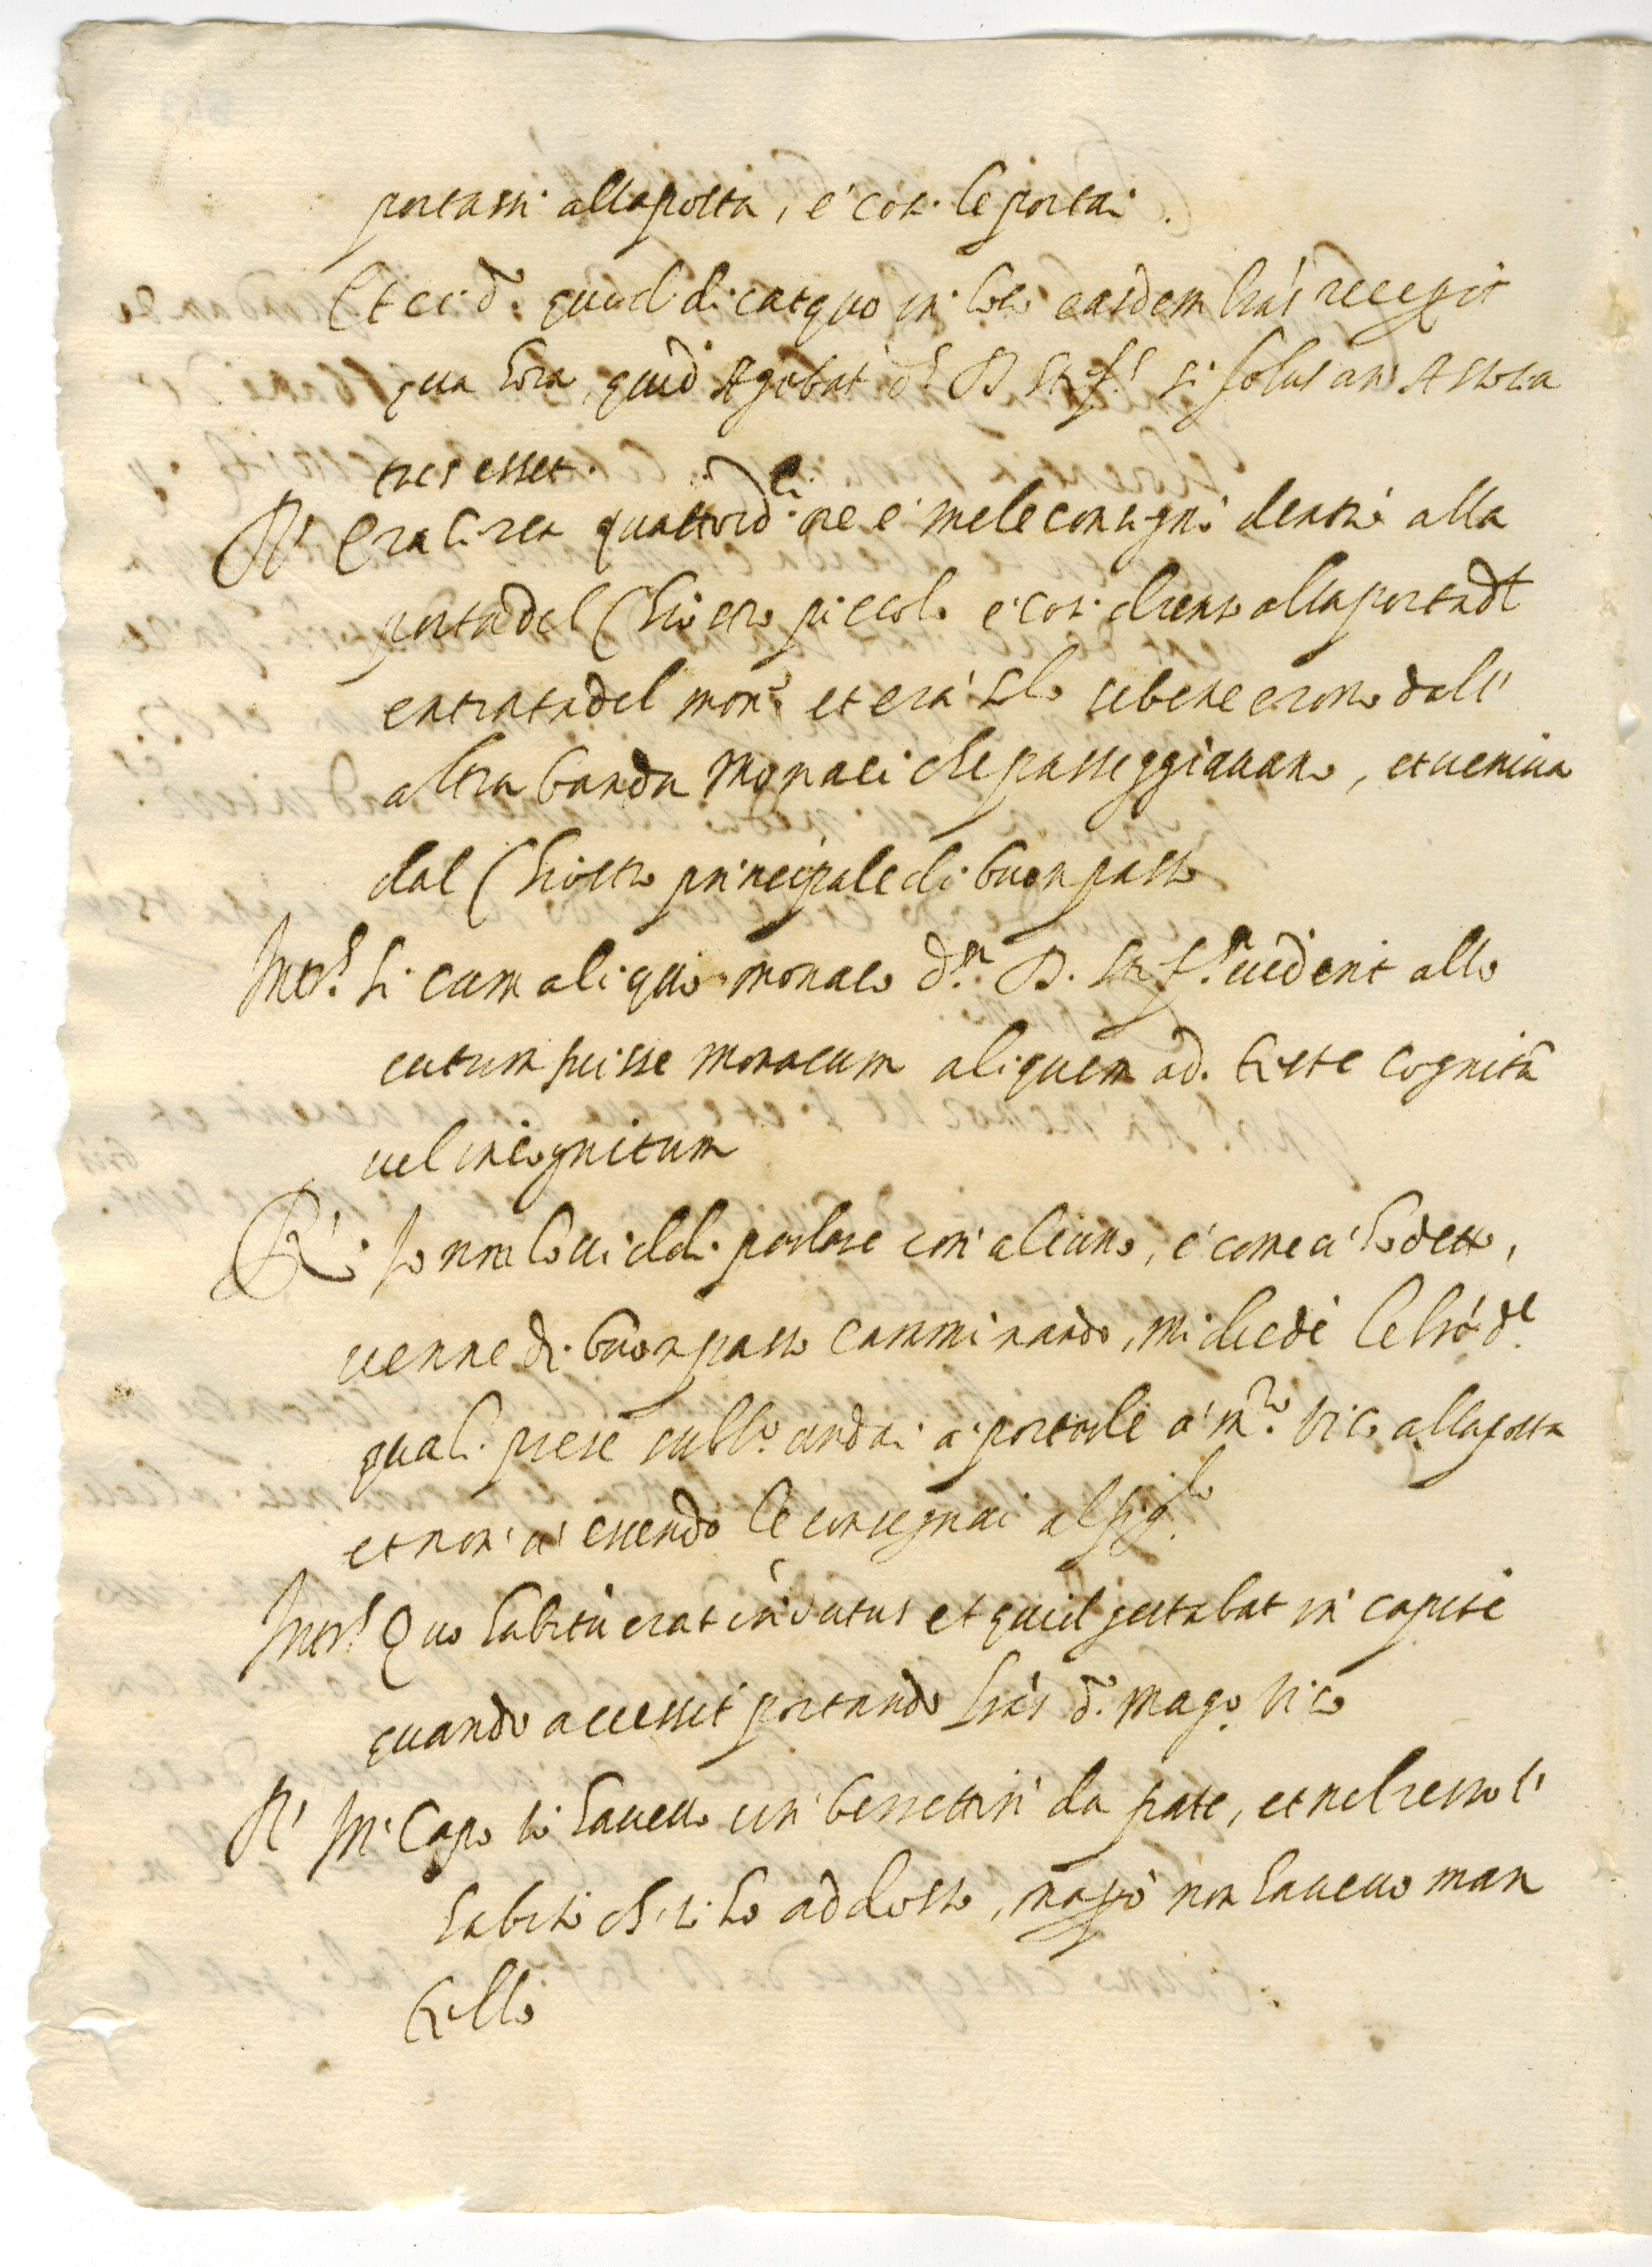 portassi alla posta, e' così le portai.
Et ei d.o quod dicat quo in loco easdem lras recepit
qua hora, quid agebat d.s D. si solus an
tres esset.
R.' Era circa quattordici ore e' me le consegnò dentro alla
porta del Chiostro piccolo e' così dreto alla porta d
entrata del mon.o et era solo sebene erono dall'
altra banda Monaci che passeggiavano, et veniva
dal Chiostro principale di buon passo
Int.s si cum aliquo monaco d.m D. viderit allo
cutum fuisse monacum aliquem ad. teste cognitū
vel incognitum
R.' Io non lo viddi parlare con' alcuno, e' come ci' ho detto,
venne di buon passo camminando, mi diede le lre d.e
quali prese subb.o andai a' portarle a' m.ro Vic.o alla posta
et non' ci' essendo le consegnai al fig.lo
Int.s Quo habitu erat indutus et quid gestabat in' capite
quando accessit portando lras d.o Mag.o Vic.o
R.' In' Capo io havevo un' berrettin' da frate, et nel resto l'
habito ch' io ho addosso, ma però non havevo man
tello